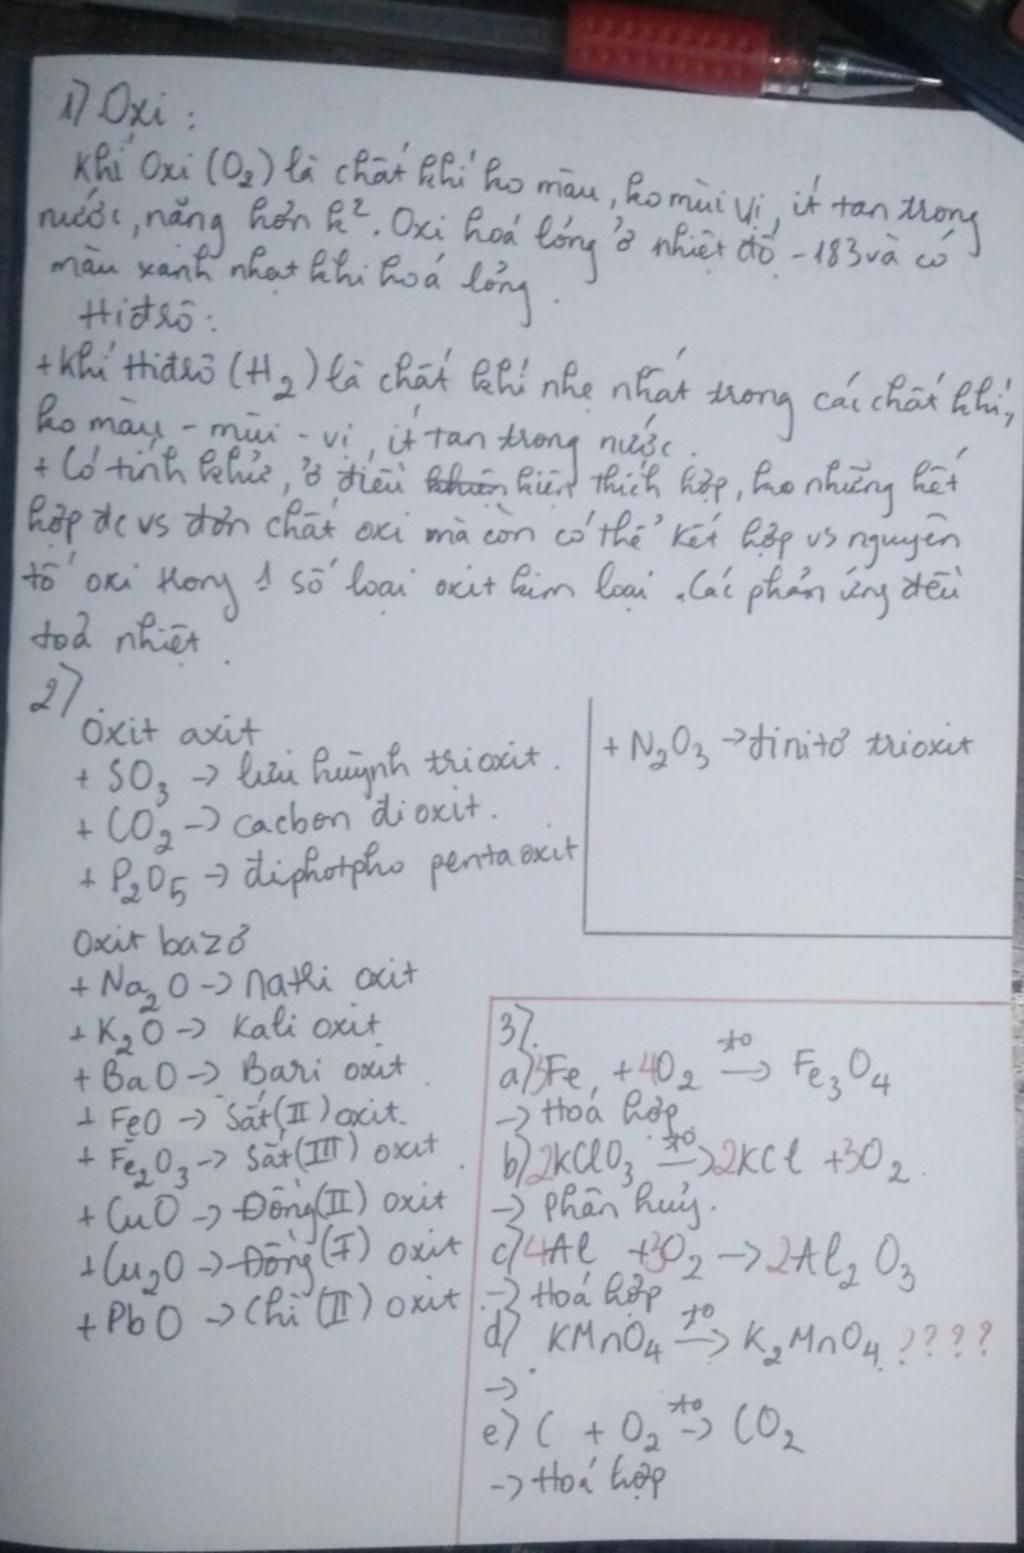 1) Oxi:
Khí Oxi (O2) là chất khí ko màu, ko mùi vị, ít tan trong
nước, nặng hơn k². Oxi hoá lỏng ở nhiệt độ -183 và có
màu xanh nhạt khi hoá lỏng.
Hiđrô:
+ Khí Hiđrô (H2) là chất khí nhẹ nhất trong các chất khí,
ko màu - mùi - vị, ít tan trong nước.
+ Có tính khử, ở điều kiện thích hợp, ko những kết
hợp đc vs đơn chất oxi mà còn có thể kết hợp vs nguyên
tố oxi trong 1 số loại oxit kim loại. Các phản ứng đều
toả nhiệt.
2)
Oxit axit
+ SO3 -> lưu huỳnh trioxit.
+ CO2 -> cacbon đioxit.
+ P2O5 -> điphotpho pentaoxit
+ N2O3 -> đinitơ trioxit
Oxit bazơ
+ Na2O -> natri oxit
+ K2O -> Kali oxit
+ BaO -> Bari oxit.
+ FeO -> Sắt(II) oxit.
+ Fe2O3 -> Sắt(III) oxit.
+ CuO -> Đồng(II) oxit
+ Cu2O -> Đồng(I) oxit
+ PbO -> Chì(II) oxit.
3).
a) Fe + 4O2 to -> Fe3O4
-> Hoá hợp
b) 2KClO3 to -> 2KCl + 3O2.
-> Phân huỷ.
c) 4Al + 3O2 -> 2Al2O3
-> Hoá hợp
d) KMnO4 to -> K2MnO4 ????
->
e) C + O2 to -> CO2
-> Hoá hợp